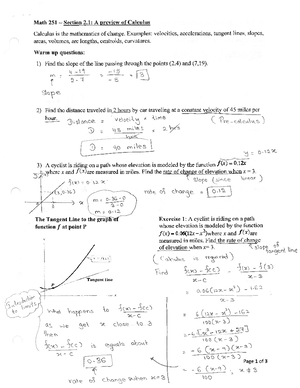 Math 251 – Section 2.1: A preview of Calculus
Calculus is the mathematics of change. Examples: velocities, accelerations, tangent lines, slopes,
areas, volumes, arc lengths, centroids, curvatures.
Warm up questions:
1) Find the slope of the line passing through the points (2,4) and (7,19).
m = 4-19 / 2-7 = -15 / -5 = 3
slope
2) Find the distance traveled in 2 hours by car traveling at a constant velocity of 45 miles per
hour.
Distance = velocity × time
(Pre-calculus)
D = 45 miles / hour × 2 hours
D = 90 miles
y = 0.12x
3) A cyclist is riding on a path whose elevation is modeled by the function f(x) = 0.12x
where x and f(x) are measured in miles. Find the rate of change of elevation when x = 3.
f(x) = 0.12x
slope (since linear)
(3, 0.36)
m = 0.36-0 / 3-0
m = 0.12
rate of change = 0.12
The Tangent Line to the graph of
function f at point P
Tangent line
what happens to f(x)-f(c) / x-c
as we get x close to 3
then
f(x)-f(c) / x-c is equals about
0.36
rate of change when x=3
Exercise 1: A cyclist is riding on a path
whose elevation is modeled by the function
f(x) = 0.06(12x - x²) where x and f(x) are
measured in miles. Find the rate of change
of elevation when x = 3.
slope of
tangent line
(Calculus is required)
Find f(x)-f(c) / x-c = f(x)-f(3) / x-3
= 0.06(12x-x²) - 1.62 / x-3
Page 1 of 3